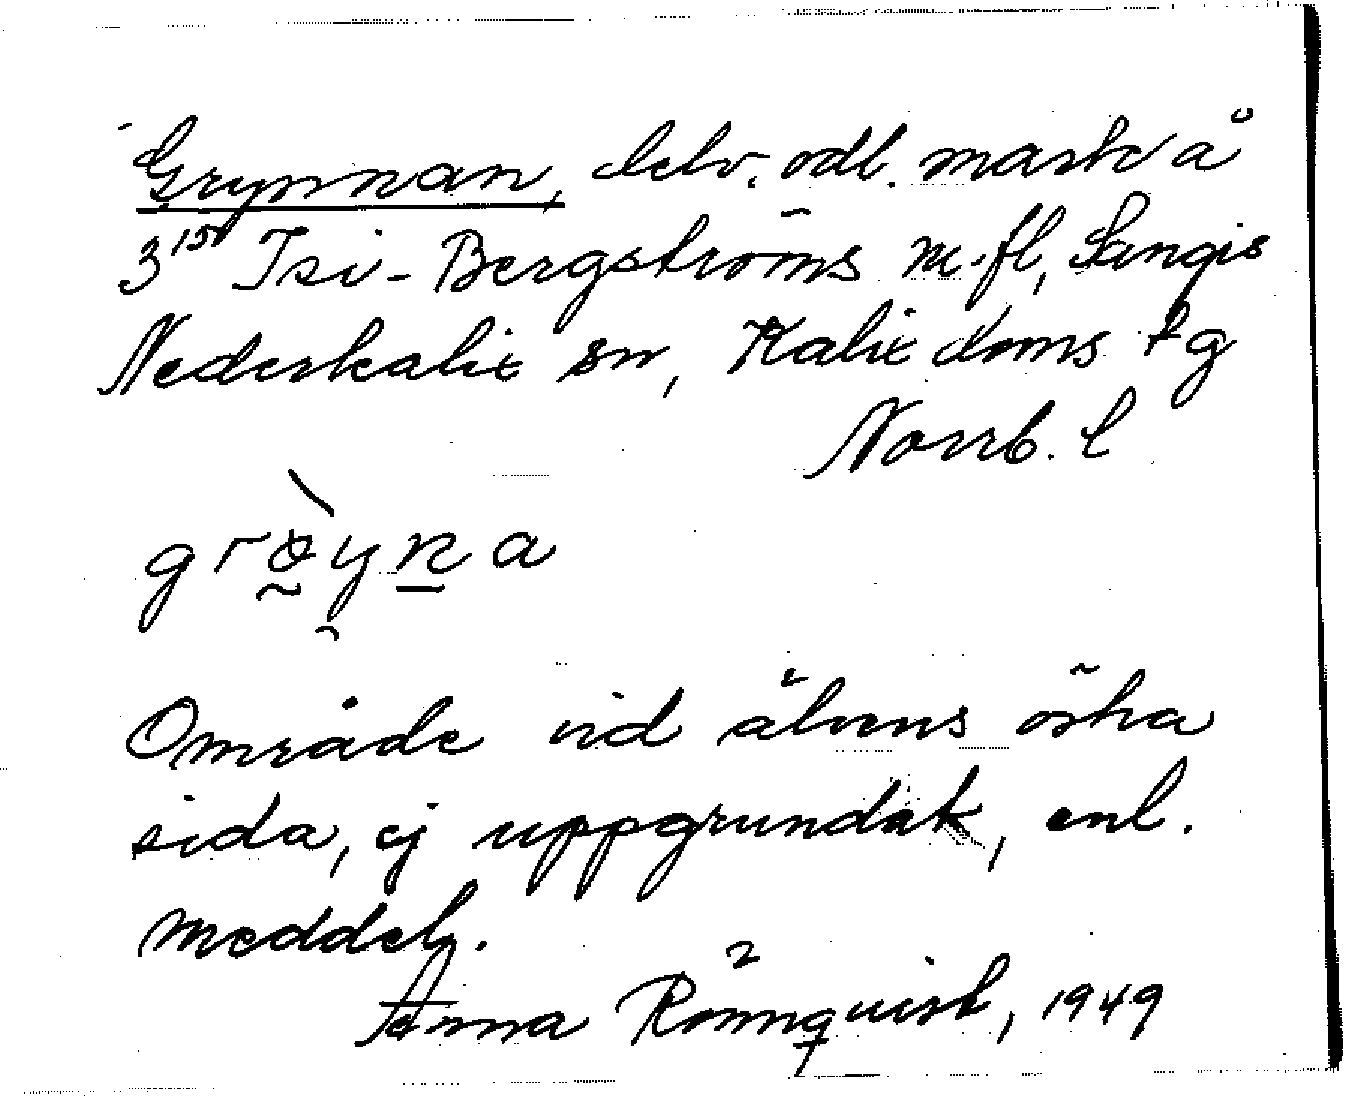 Grynnan, delv. odl. mark å
3¹⁵ Isi-Bergströms m.fl, Sangis
Nederkalix sn, Kalix doms tg
Norrb. l
grøyna
Område vid älvens östra
sida, ej uppgrundat, enl.
meddel.
Anna Rönnqvist, 1949